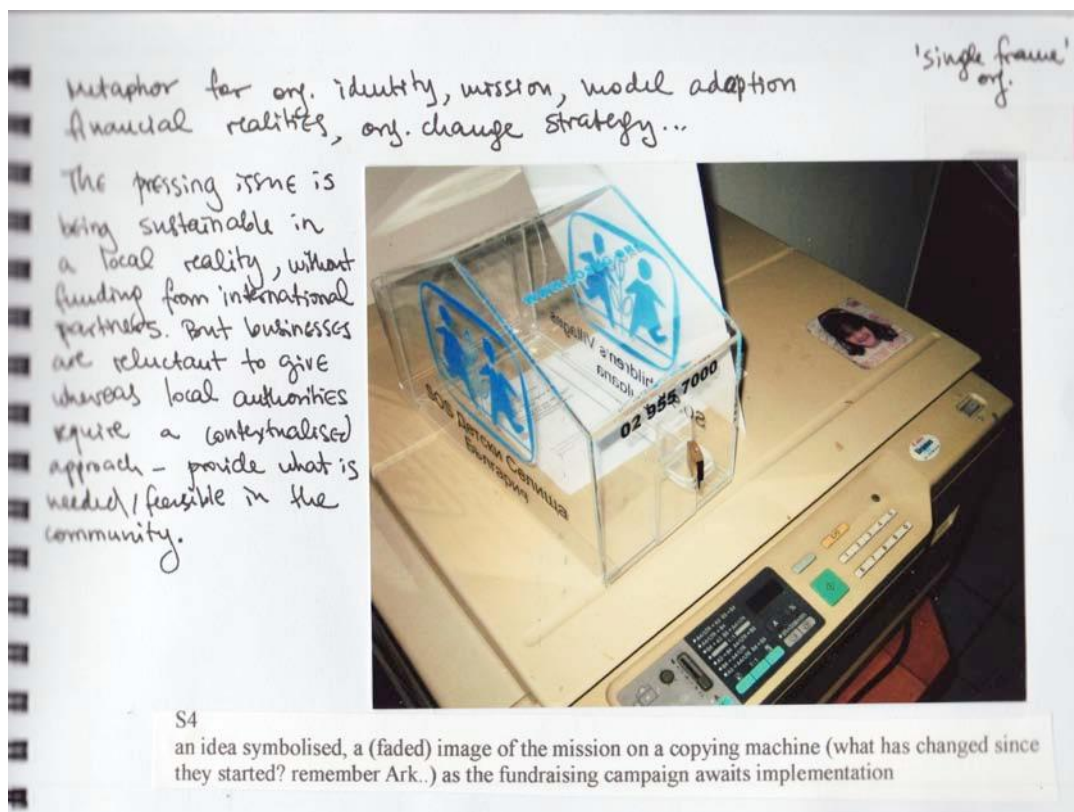 'single frame'
org.
Metaphor for org. identity, mission, model adaption
financial realities, org. change strategy...
The pressing issue is
being sustainable in
a local reality, without
funding from international
partners. But businesses
are reluctant to give
whereas local authorities
require a contextualised
approach – provide what is
needed/feasible in the
community.
www.sosbg.org
Children's Villages
02 955 7000
SOS Детски Селища
България
S4
an idea symbolised, a (faded) image of the mission on a copying machine (what has changed since
they started? remember Ark..) as the fundraising campaign awaits implementation